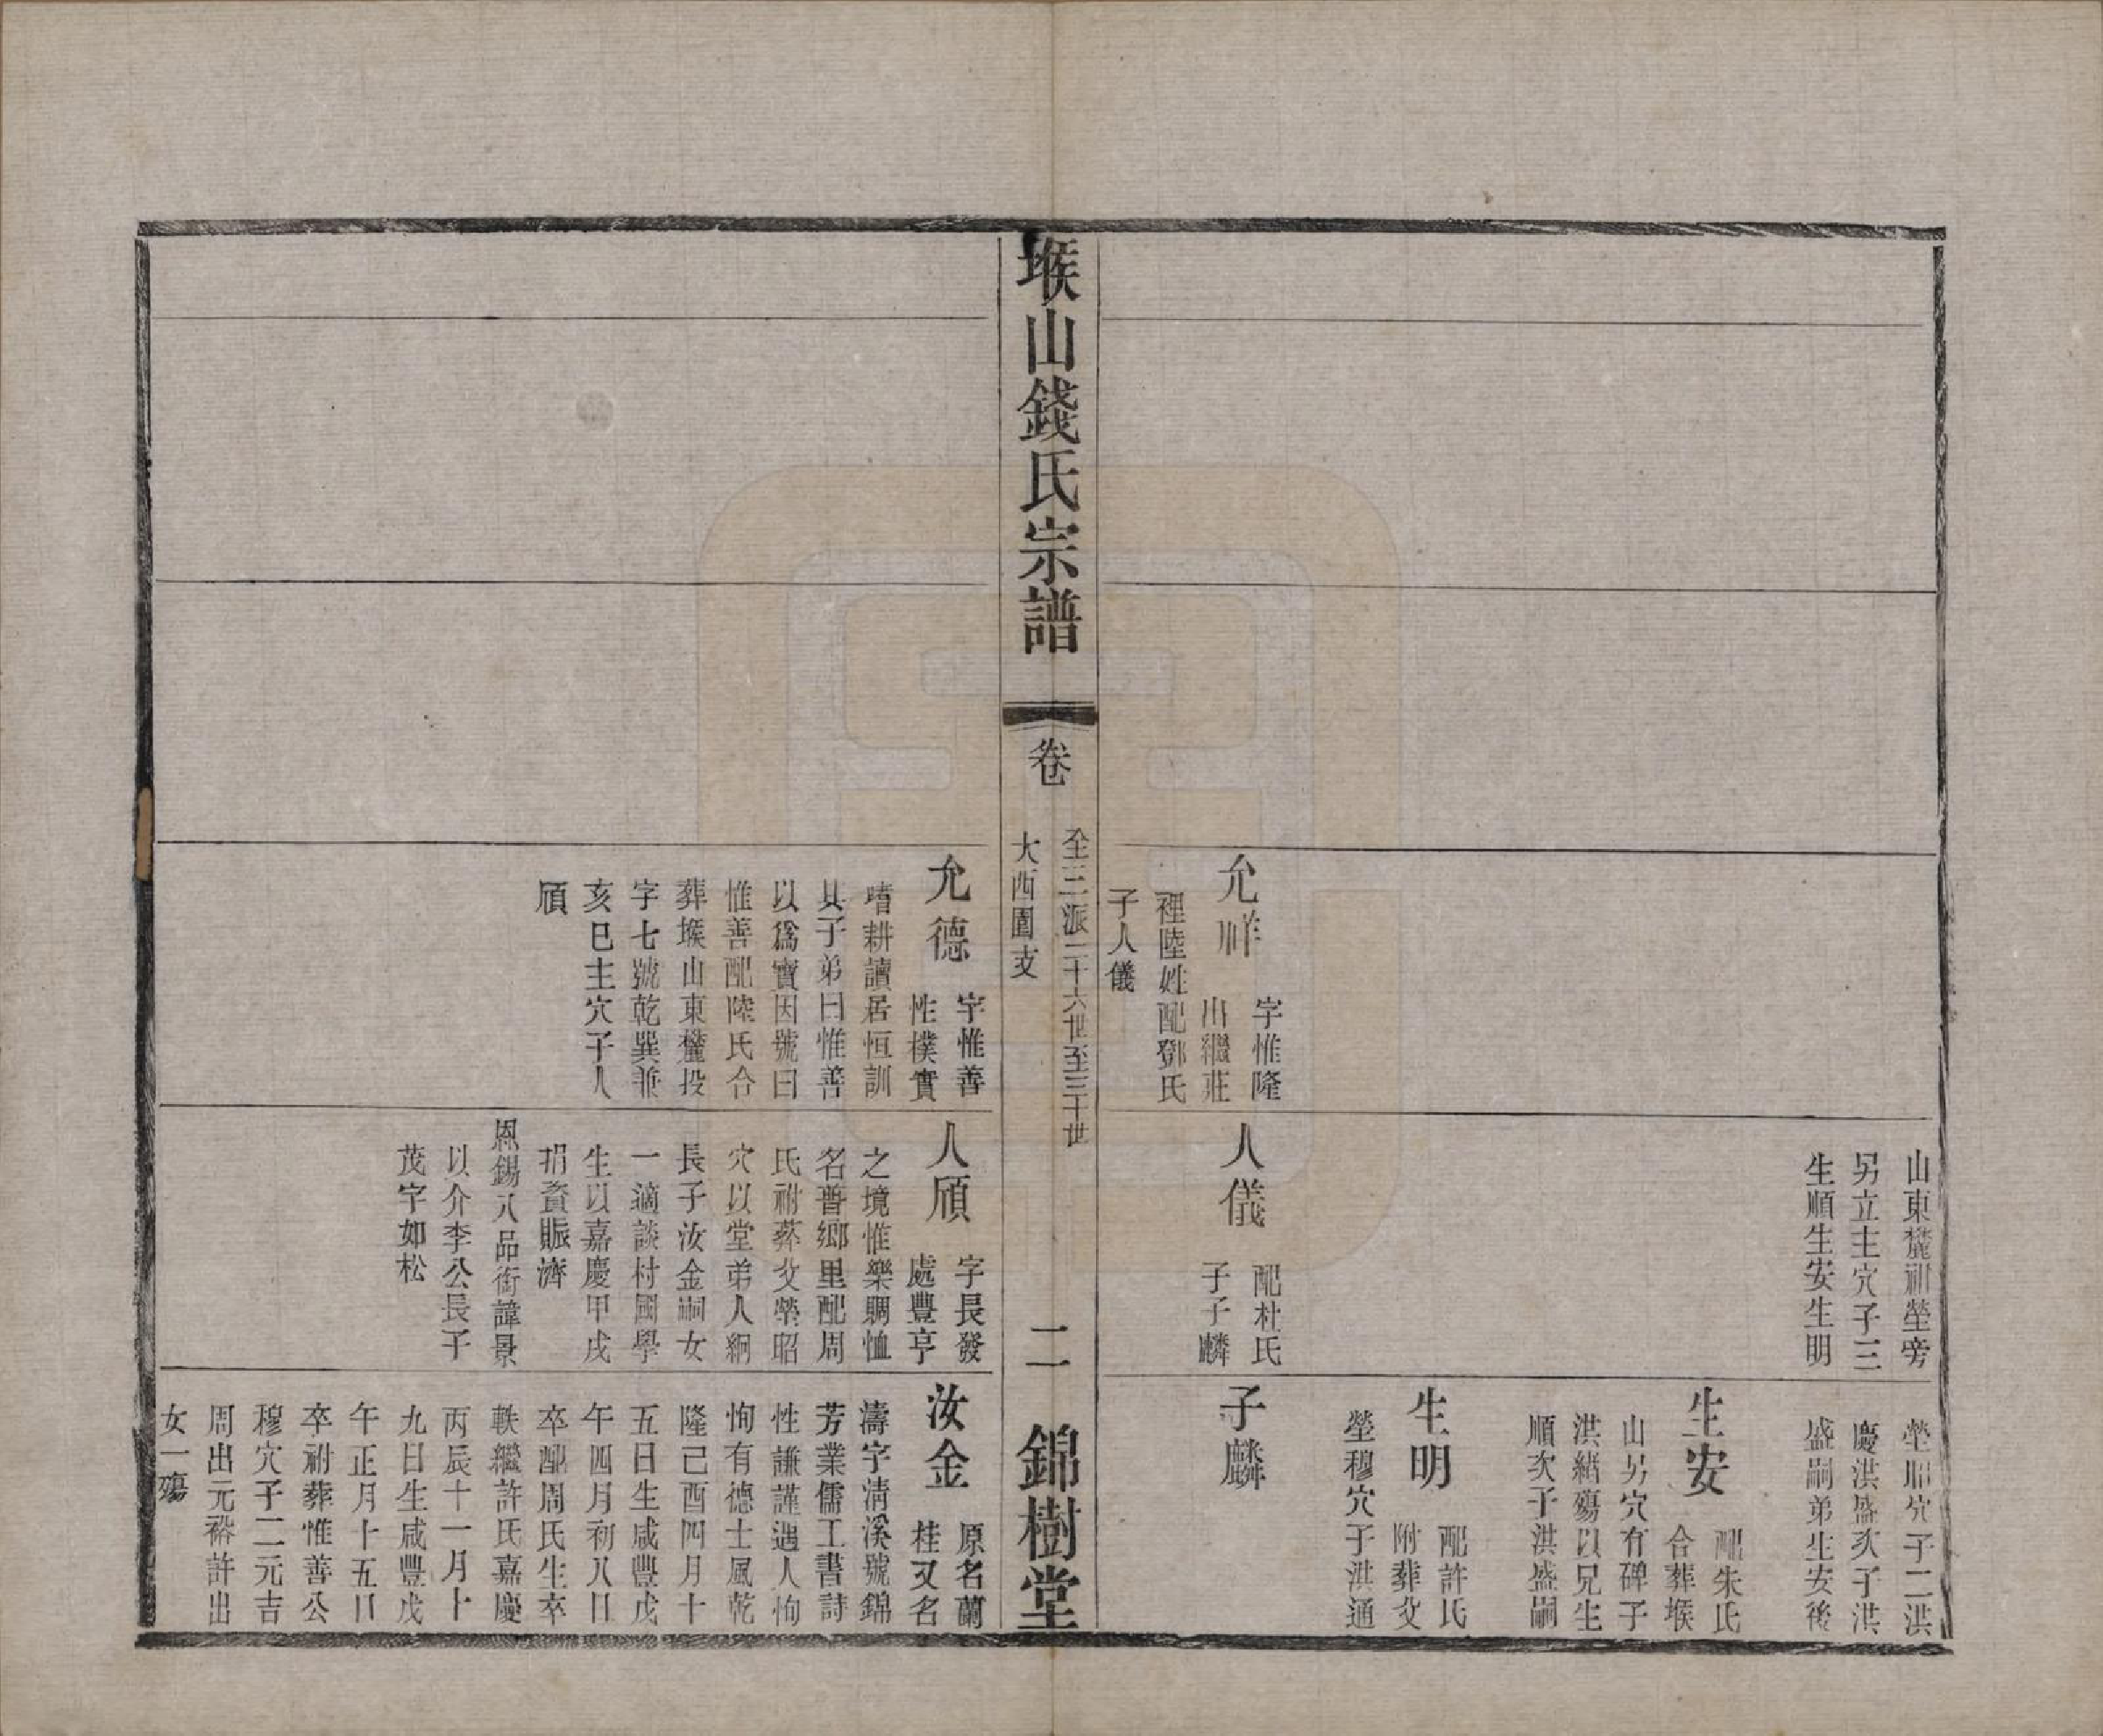 山東麓祔塋旁
另立主穴子三
生順生安生明
塋昭穴子二洪
慶洪盛亥子洪
盛嗣弟生安後
生安
配朱氏
合葬堠
山另穴有碑子
洪緒殤以兄生
順次子洪盛嗣
生明
配許氏
附葬父
塋穆穴子洪通
允祥
字惟隆
出繼莊
裡陸姓配鄧氏
子人儀
人儀
配杜氏
子子麟
子麟
堠山錢氏宗譜
卷
全三派二十六世至三十世
大西園支
二
錦樹堂
允德
字惟善
性樸實
嗜耕讀居恒訓
其子弟曰惟善
以為寶因號曰
惟善配陸氏合
葬堠山東麓投
字七號乾巽兼
亥巳主穴子人
頎
人頎
字長發
處豐亨
之境惟樂賙恤
名普鄉里配周
氏祔葬父塋昭
穴以堂弟人綱
長子汝金嗣女
一適談村國學
生以嘉慶甲戌
捐資賑濟
恩錫八品銜諱景
以介李公長子
茂字如松
汝金
原名蘭
桂又名
濤字淸溪號錦
芳業儒工書詩
性謙謹遇人恂
恂有德士風乾
隆己酉四月十
五日生咸豐戊
午四月初八日
卒配周氏生卒
軼繼許氏嘉慶
丙辰十一月十
九日生咸豐戊
午正月十五日
卒祔葬惟善公
穆穴子二元吉
周出元裕許出
女一殤